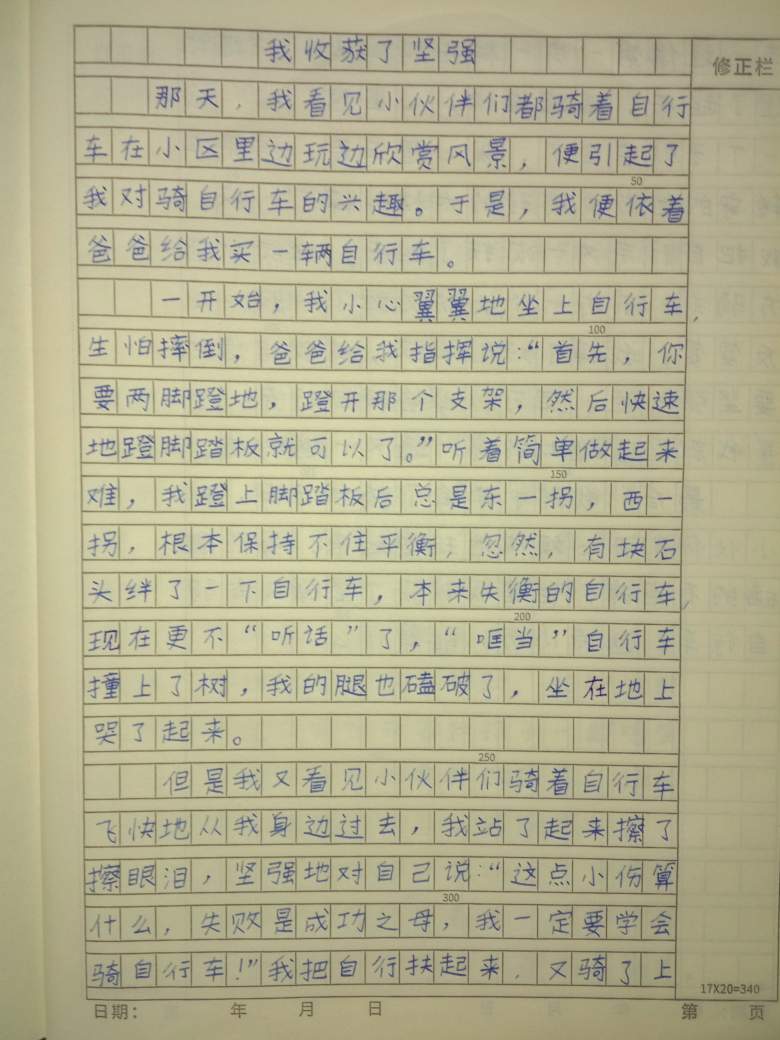 我收获了坚强
修正栏
那天，我看见小伙伴们都骑着自行
车在小区里边玩边欣赏风景，便引起了
50
我对骑自行车的兴趣。于是，我便依着
爸爸给我买一辆自行车。
一开始，我小心翼翼地坐上自行车，
100
生怕摔倒，爸爸给我指挥说：“首先，你
要两脚蹬地，蹬开那个支架，然后快速
地蹬脚踏板就可以了。”听着简单做起来
150
难，我蹬上脚踏板后总是东一拐，西一
拐，根本保持不住平衡，忽然，有块石
头绊了一下自行车，本来失衡的自行车，
200
现在更不“听话”了，“哐当”自行车
撞上了树，我的腿也磕破了，坐在地上
哭了起来。
250
但是我又看见小伙伴们骑着自行车
飞快地从我身边过去，我站了起来擦了
擦眼泪，坚强地对自己说：“这点小伤算
300
什么，失败是成功之母，我一定要学会
骑自行车！”我把自行扶起来，又骑了上
17X20=340
日期： 年 月 日 第 页